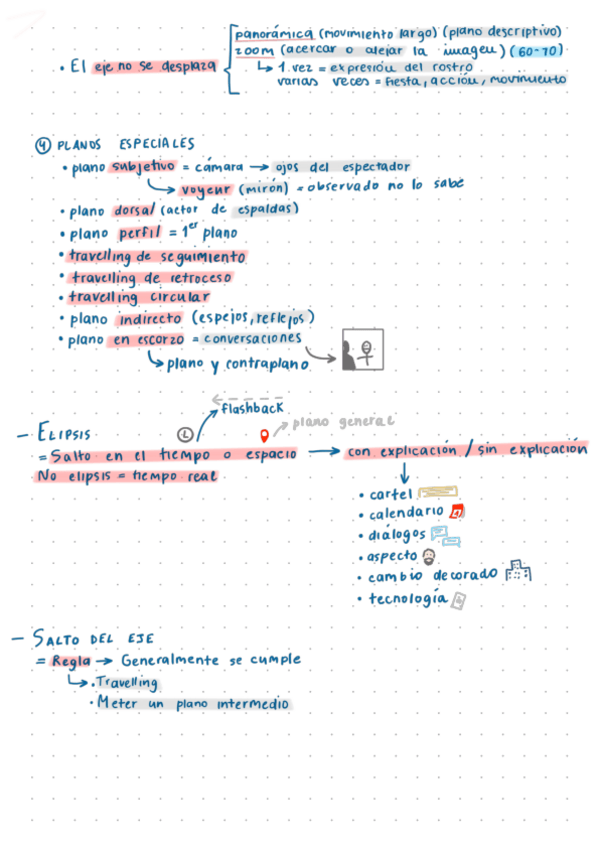 panorámica (movimiento largo) (plano descriptivo)
zoom (acercar o alejar la imagen) (60-70)
• El eje no se desplaza
↳ 1 vez = expresión del rostro
varias veces = fiesta, acción, movimiento
④ PLANOS ESPECIALES
• plano subjetivo = cámara → ojos del espectador
↳ voyeur (mirón) = observado no lo sabe
• plano dorsal (actor de espaldas)
• plano perfil = 1er plano
• travelling de seguimiento
• travelling de retroceso
• travelling circular
• plano indirecto (espejos, reflejos)
• plano en escorzo = conversaciones
↳ plano y contraplano
flashback
plano general
– ELIPSIS
= Salto en el tiempo o espacio → con explicación / sin explicación
No elipsis = tiempo real
• cartel
• calendario
• diálogos
• aspecto
• cambio decorado
• tecnología
– SALTO DEL EJE
= Regla → Generalmente se cumple
↳ • Travelling
• Meter un plano intermedio